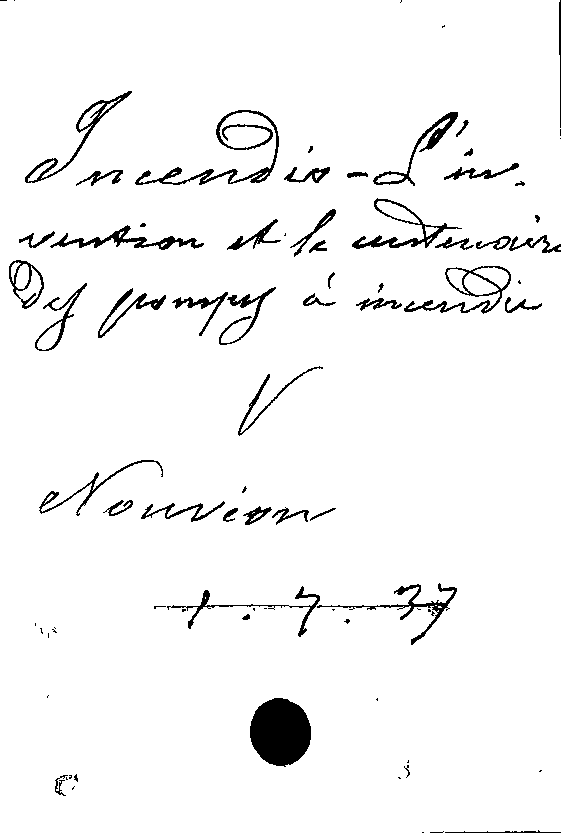 Incendie - L'in-
vention et le centenaire
des pompes à incendie
V
Nouvion
1. 7. 37